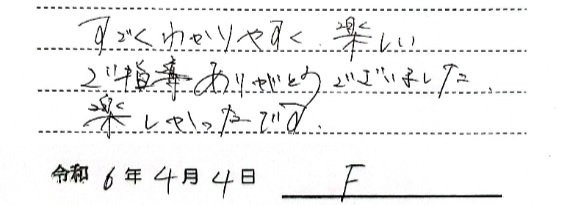 すごくわかりやすく、楽しい
ご指導ありがとうございました。
楽しかったです。
令和 6 年 4 月 4 日 F